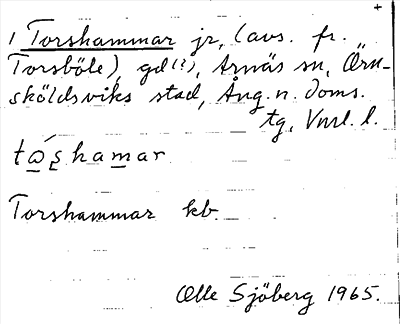 +
1 Torshammar jr, (avs. fr.
Torsböle), gd(?), Arnäs sn, Örn-
sköldsviks stad, Ång. n. doms.
tg, Vnrl. l.
tɷ́ʂhamar
Torshammar kb
Olle Sjöberg 1965.